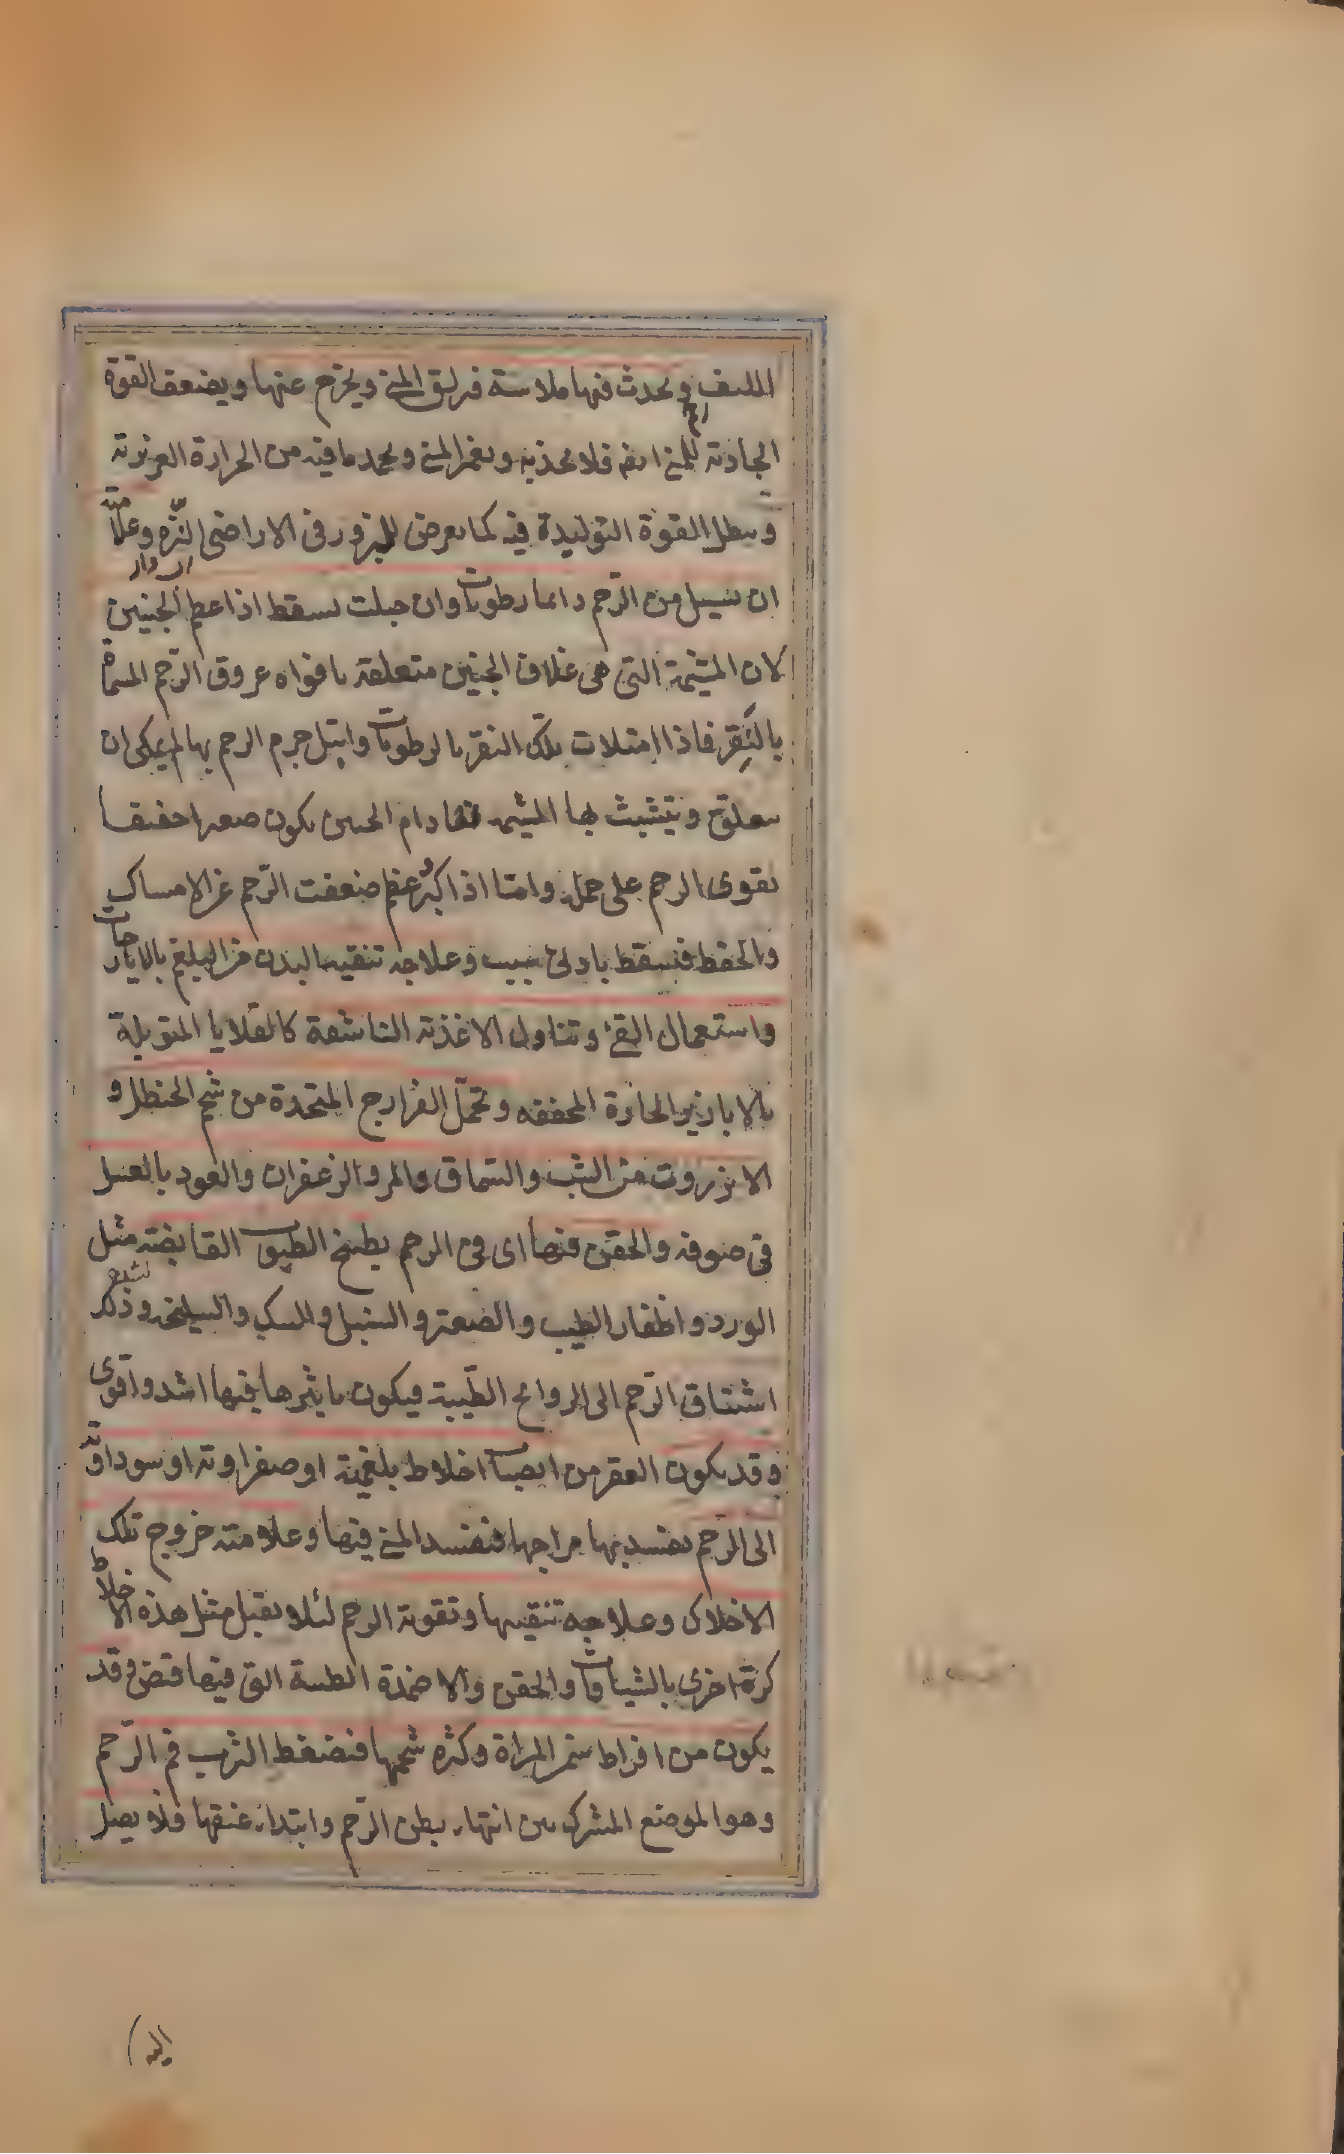 الليف ويحدث فيها ملاسة فيزلق المنى ويخرج عنها ويضعف القوة
الجاذبة للمنى ايضا فلا يجذبه ويغمر المنى ويجمد ما فيه من الحرارة الغريزية
ويبطل القوة التوليدية فيه كما يعرض للبزور فى الاراضى النزه وعلامته
ان يسيل من الرّحم دائما رطوبات وان حبلت يسقط اذا عظم الجنين
لان المشيمة التى هى غلاف الجنين متعلقة بافواه عروق الرّحم المسماة
بالنُّقر فاذا امتلات تلك النقر بالرطوبات وابتل جرم الرحم بها لم يمكن ان
يتعلق ويتشبث بها المشيمه فما دام الجنين يكون صغيرا خفيفا
يقوى الرحم على حمله وامّا اذا كبُر عظم ضعفت الرّحم عن الامساك
والحفظ فيسقط بادنى سبب وعلاجه تنقية البدن من البلغم بالايارجات
واستعمال القئ وتناول الاغذية الناشفة كالقلايا المتوبلة
بالابازير الحارة المجففه وتحمّل الفرازج المتخذة من شحم الحنظل و
الانزروت من الشب والسّماق والمر والزعفران والعود بالعسل
فى صوفه والحقن فيها اى فى الرحم بطبيخ الطيوب القابضة مثل
الورد واظفار الطيب والصعتر والسنبل والسك والسليخه وذلك لشدة
اشتياق الرّحم الى الروائح الطّيبة فيكون تاثيرها فيها اشد واقوى
وقد يكون العقر من انصباب اخلاط بلغمية او صفراوية او سوداوية
الى الرّحم يفسد بها مزاجها فيفسد المنى فيها وعلامته خروج تلك
الاخلاط وعلاجه تنقيتها وتقوية الرحم لئلا يقبل مثل هذه الاخلاط
كرة اخرى بالشيافات والحقن والاضمدة الطيبة التى فيها قبض وقد
يكون من افراط سمن المراة وكثرة شحمها فيضغط الثرب فم الرّحم
وهو الموضع المشترك بين انتهاء بطن الرّحم وابتداء عنقها فلا يصل
اليه